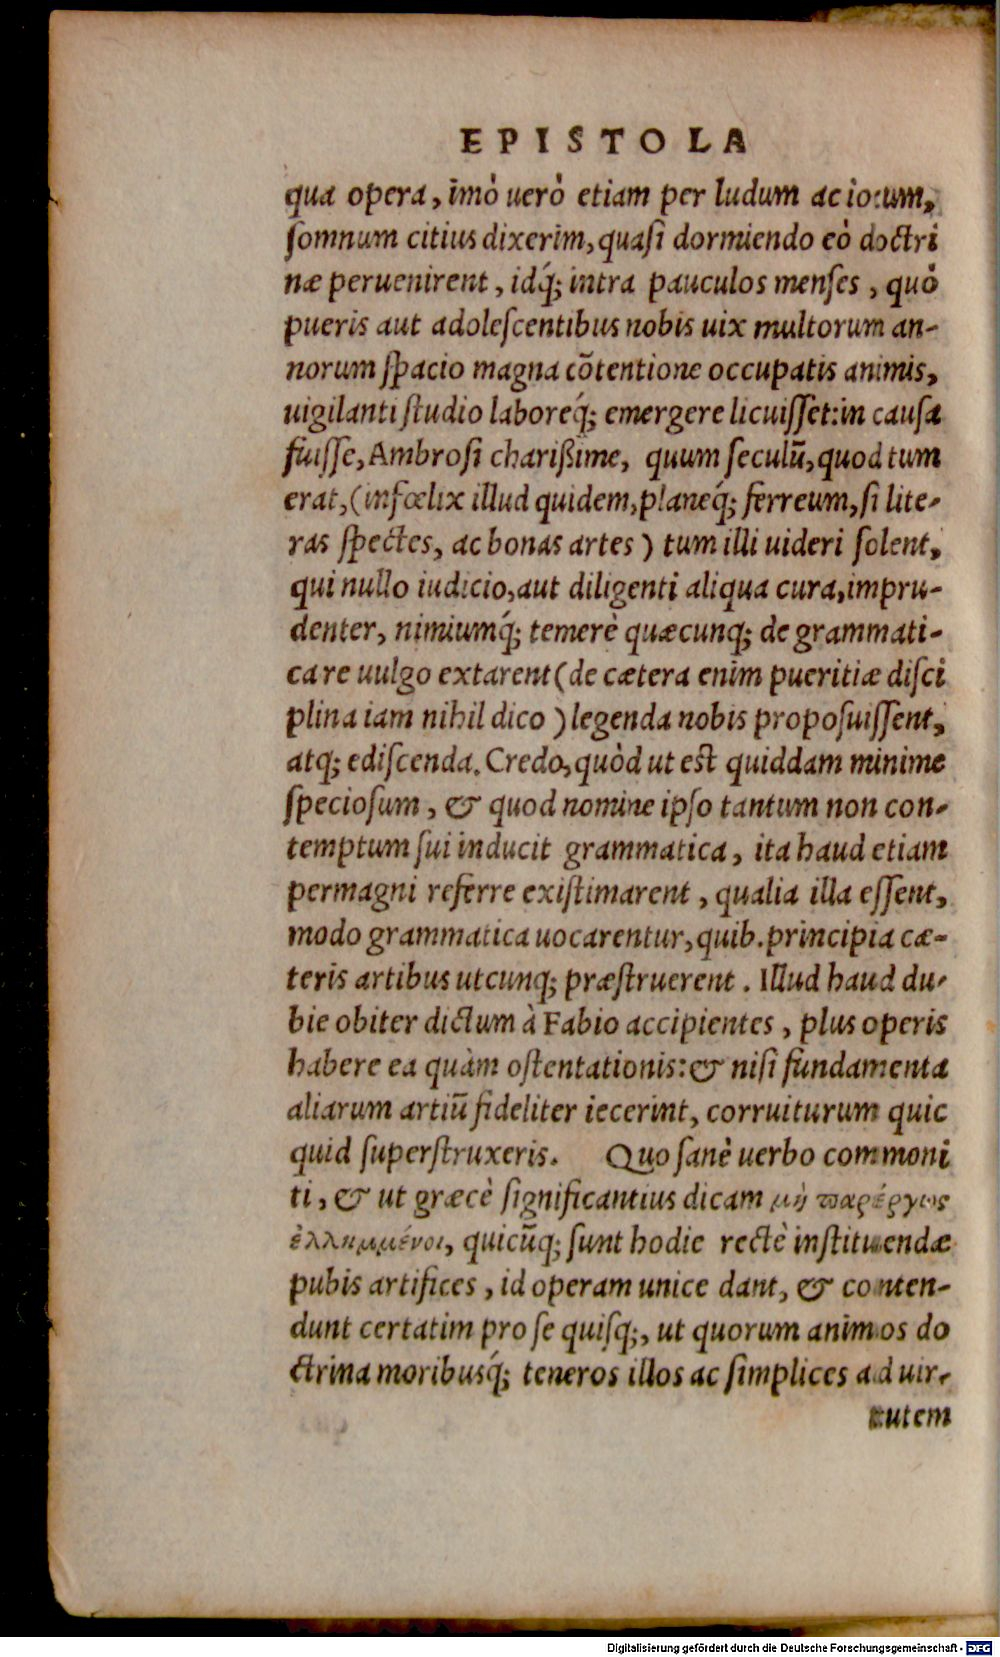 EPISTOLA
qua opera, imò uerò etiam per ludum ac iocum,
ſomnum citius dixerim, quaſi dormiendo eò doctri
næ peruenirent, idq́; intra pauculos menſes, quò
pueris aut adoleſcentibus nobis uix multorum an-
norum ſpacio magna cõtentione occupatis animis,
uigilanti ſtudio laboreq́; emergere licuiſſet: in cauſa
fuiſſe, Ambroſi chariſsime, quum ſeculũ, quod tum
erat, (infœlix illud quidem, planeq́; ferreum, ſi lite-
ras ſpectes, ac bonas artes) tum illi uideri ſolent,
qui nullo iudicio, aut diligenti aliqua cura, impru-
denter, nimiumq́; temerè quæcunq; de grammati-
ca re uulgo extarent (de cætera enim pueritiæ diſci
plina iam nihil dico) legenda nobis propoſuiſſent,
atq; ediſcenda. Credo, quòd ut est quiddam minime
ſpecioſum, & quod nomine ipſo tantum non con-
temptum ſui inducit grammatica, ita haud etiam
permagni referre exiſtimarent, qualia illa eſſent,
modo grammatica uocarentur, quib. principia cæ-
teris artibus utcunq; præſtruerent. Illud haud du-
bie obiter dictum à Fabio accipientes, plus operis
habere ea quàm oſtentationis: & niſi fundamenta
aliarum artiũ fideliter iecerint, corruiturum quic
quid ſuperſtruxeris. Quo ſanè uerbo commoni
ti, & ut græcè ſignificantius dicam μὴ παρέργως
ἐλλημμένοι, quicũq; ſunt hodie rectè inſtituendæ
pubis artifices, id operam unice dant, & conten-
dunt certatim pro ſe quiſq;, ut quorum animos do
ctrina moribusq́; teneros illos ac ſimplices ad uir-
tutem
Digitalisierung gefördert durch die Deutsche Forschungsgemeinschaft - DFG